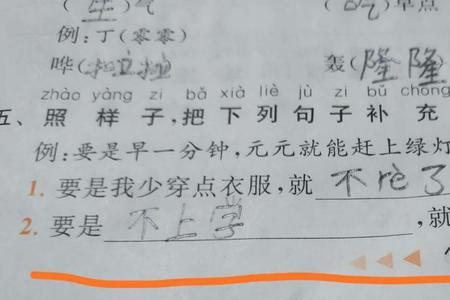 (生)气 (吃)早点
例:丁(零零)
哗(啦啦) 轰(隆隆)
zhào yàng zi bǎ xià liè jù zi bǔ chōng
五、照样子,把下列句子补充
例:要是早一分钟,元元就能赶上绿灯
1. 要是我少穿点衣服,就不 了
2. 要是不上学,就